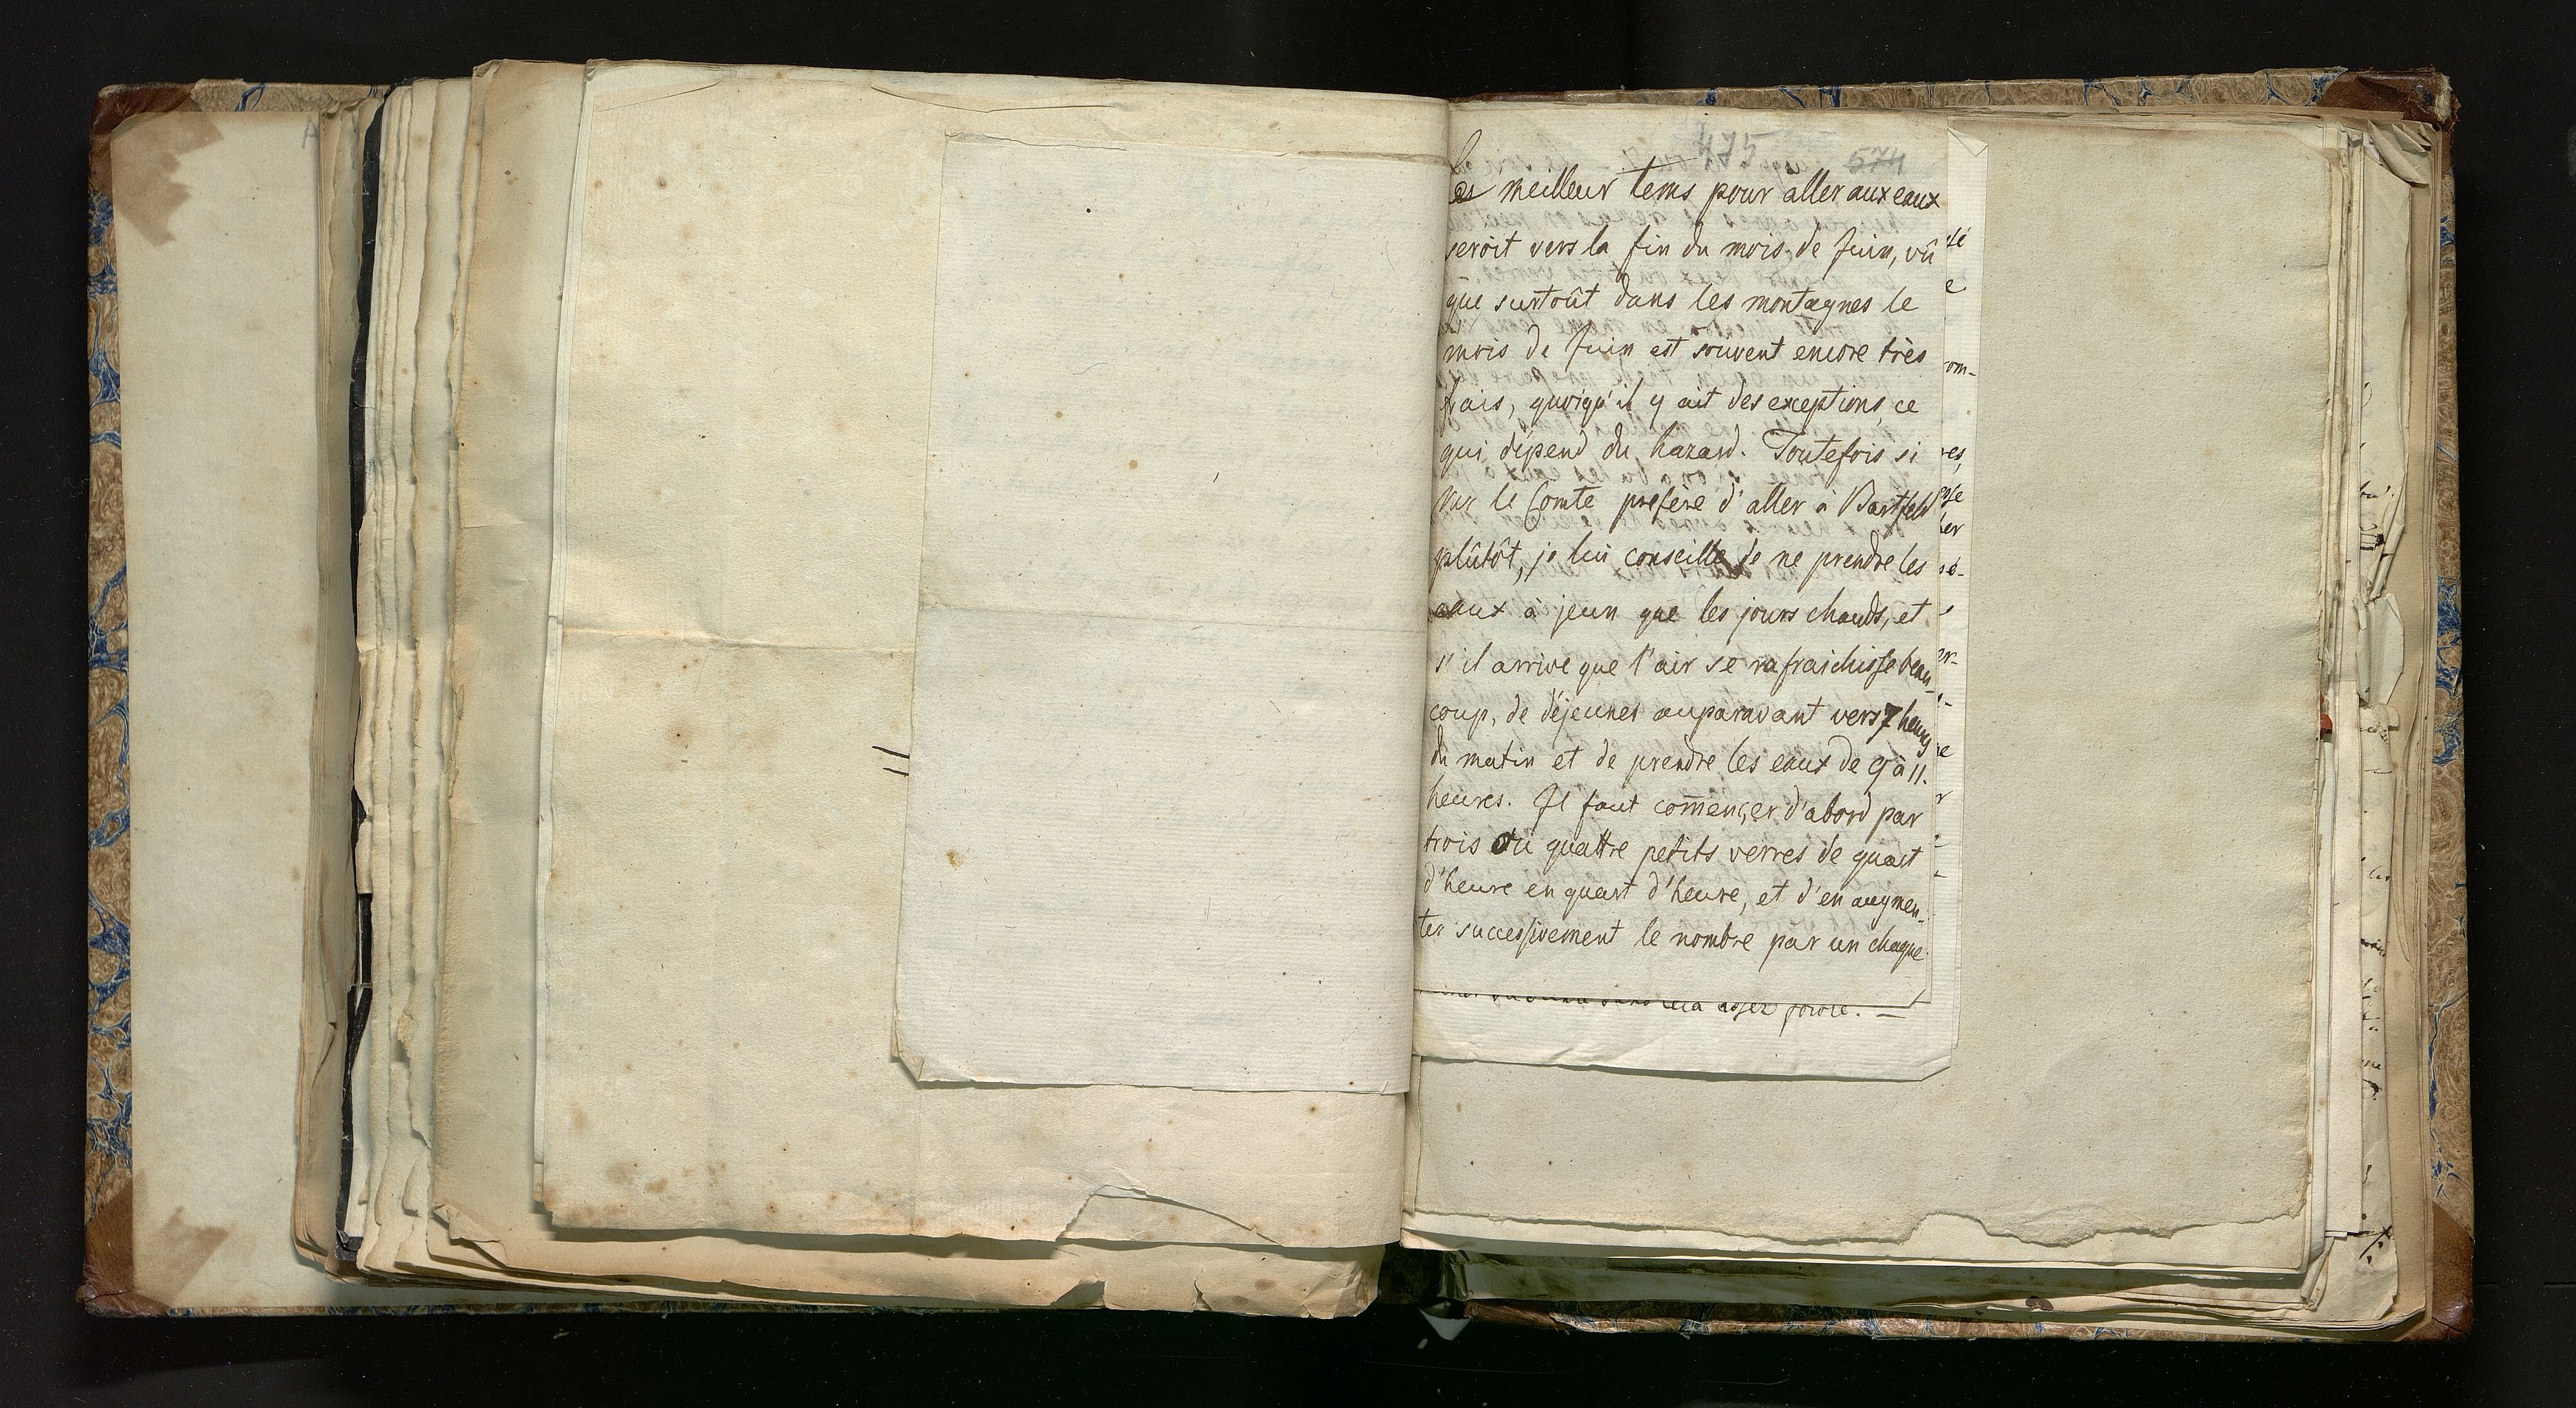 475 574
Le meilleur tems pour aller aux eaux
seroit vers la fin du mois de Juin, vû
que surtoût dans les montagnes le
mois de Juin est souvent encore très
frais, quoiqu'il y ait des exceptions, ce
qui dépend du hazard. Toutefois si
Mr le Comte prefère d'aller à Bartfeld
plûtôt, je lui conseille de ne prendre les
eaux à jeun que les jours chauds, et
s'il arrive que l'air se rafraichisse beau-
coup, de déjeuner auparavant vers 7 heures
du matin et de prendre les eaux de 9 à 11.
heures. Il faut com̄ençer d'abord par
trois ou quattre petits verres de quart
d'heure en quart d'heure, et d'en augmen-
ter successivement le nombre par un chaque
assez